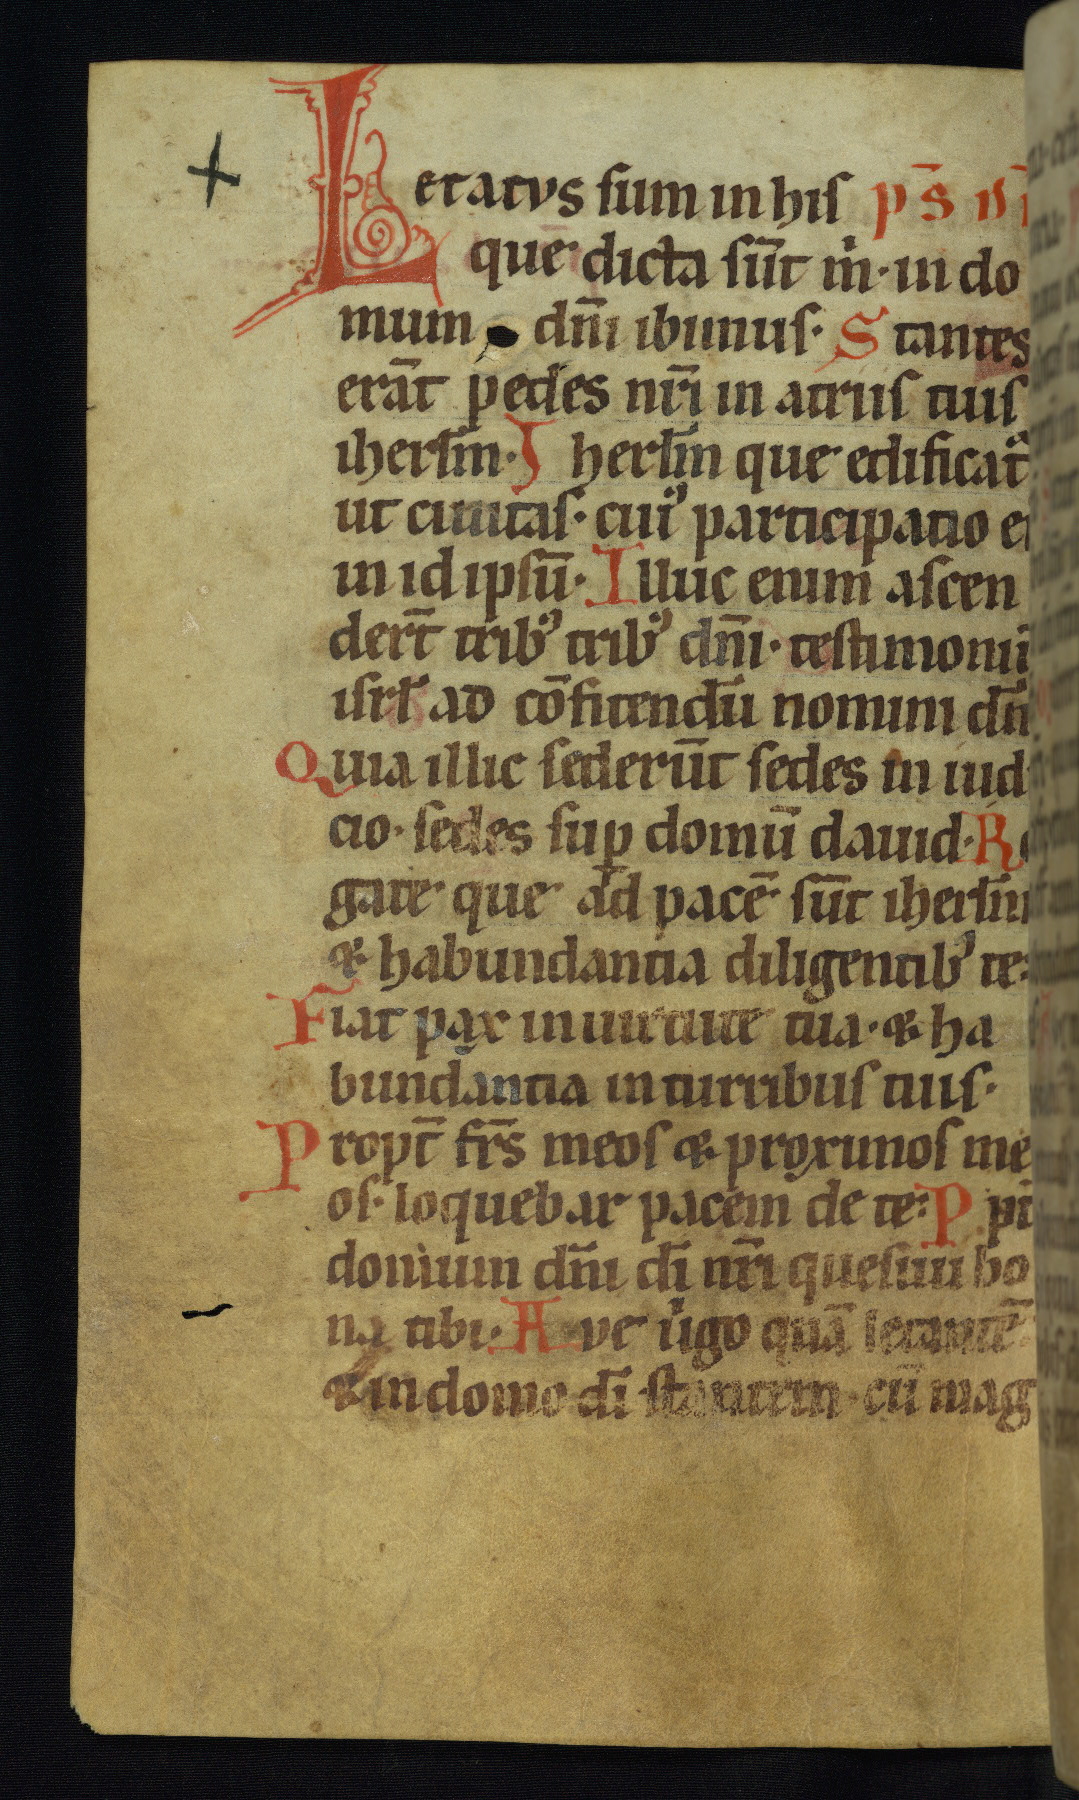 Letatus sum in his p̄s
que dicta sūt ṁ · in do
mum dn̄i ibimus · Stantes
erāt pedes nr̄i in atriis tuis
iherl̄m · Iherl̄m que edificat᷑
ut ciuitas · cuiꝰ participatio ei
in id ipsū · Illuc enim ascen
der̄t tribꝰ tribꝰ dn̄i · testimoniū
isrl̄ ad cōfitendū nomini dn̄
Quia illic sederūt sedes in iudi
cio · sedes suꝑ domū dauid · Ro
gate que ad pacē sūt iherl̄m
⁊ habundantia diligentibꝰ te :
Fiat pax in uirtute tua · ⁊ ha
bundantia in turribus tuis ·
Propt̄ fr̄s meos ⁊ proximos me
os · loquebar pacem de te : Ppt̄
domum dn̄i dī nr̄i quesiui bo
na tibi · Aue uͥgo quā letantē
⁊ in domo dī stantem · cū mag